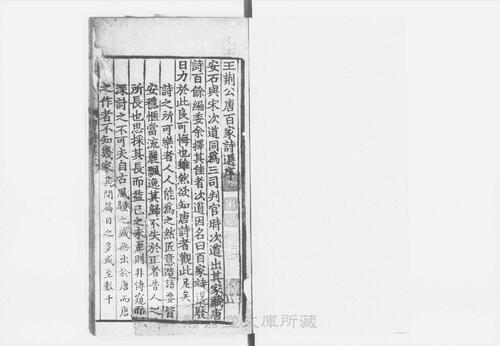 王荆公唐百家詩選序
安石與宋次道同爲三司判官時次道出其家藏唐
詩百餘編委余擇其佳者次道因名曰百家詩選廢
日力於此良可悔也雖然欲知唐詩者觀此足矣
詩之所可樂者人人能爲之然匠意造語要皆
安穩愜當流麗飄逸其歸不失於正者昔人之
所長也思採其長而益己之未至則非博窺而
深討之不可夫自古風騷之盛無出於唐而唐
之作者不知幾家其間篇目之多或至數千
文庫所藏